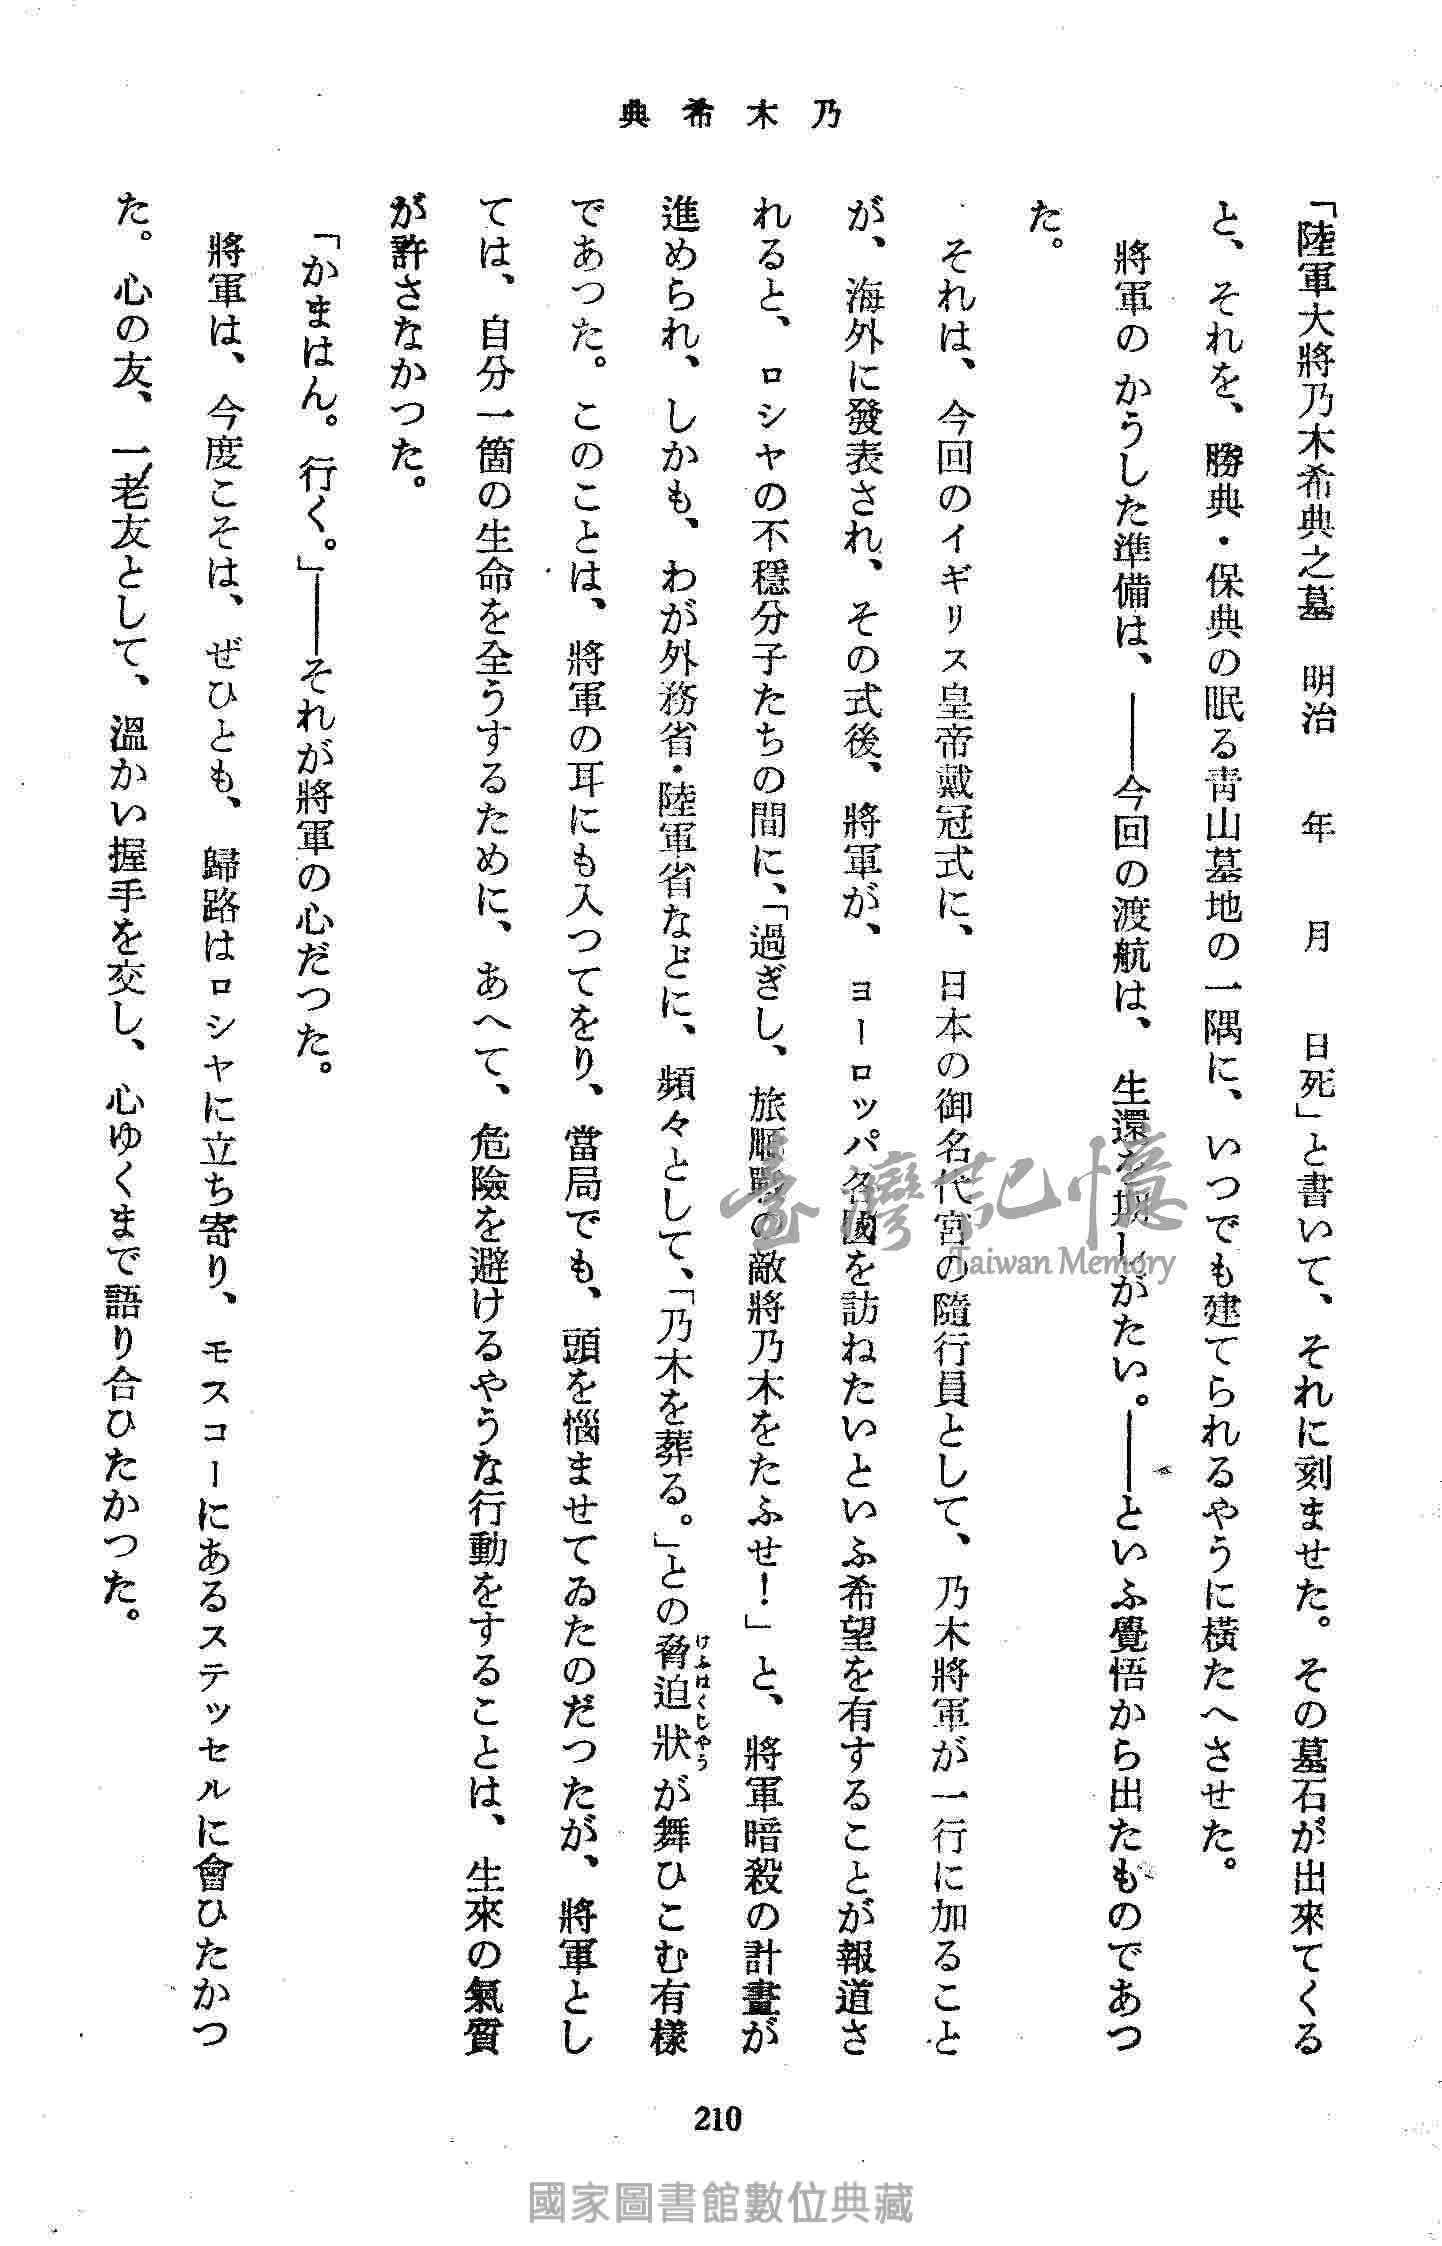 乃木希典
「陸軍大將乃木希典之墓　明治　　年　　月　　日死」と書いて、それに刻ませた。その墓石が出來てくる
と、それを、勝典・保典の眠る靑山墓地の一隅に、いつでも建てられるやうに橫たへさせた。
將軍のかうした準備は、――今回の渡航は、生還を期しがたい。――といふ覺悟から出たものであつ
た。
それは、今回のイギリス皇帝戴冠式に、日本の御名代宮の隨行員として、乃木將軍が一行に加ること
が、海外に發表され、その式後、將軍が、ヨーロッパ各國を訪ねたいといふ希望を有することが報道さ
れると、ロシヤの不穩分子たちの間に、「過ぎし、旅順戰の敵將乃木をたふせ！」と、將軍暗殺の計畫が
進められ、しかも、わが外務省・陸軍省などに、頻々として、「乃木を葬る。」との脅迫狀が舞ひこむ有樣
けふはくじやう
であつた。このことは、將軍の耳にも入つてをり、當局でも、頭を惱ませてゐたのだつたが、將軍とし
ては、自分一箇の生命を全うするために、あへて、危險を避けるやうな行動をすることは、生來の氣質
が許さなかつた。
「かまはん。行く。」――それが將軍の心だつた。
將軍は、今度こそは、ぜひとも、歸路はロシヤに立ち寄り、モスコーにあるステッセルに會ひたかつ
た。心の友、一老友として、溫かい握手を交し、心ゆくまで語り合ひたかつた。
210
臺灣記憶
Taiwan Memory
國家圖書館數位典藏